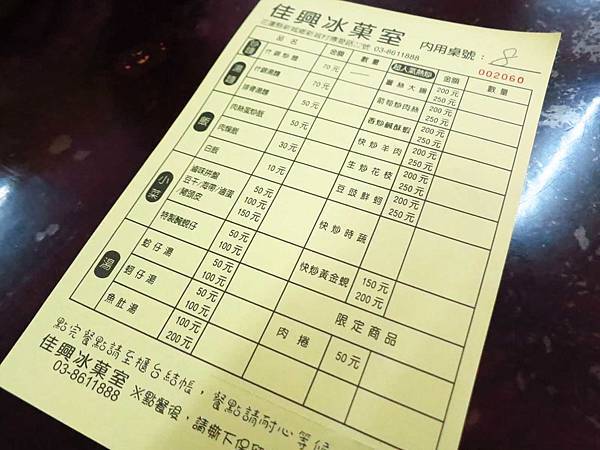 佳興冰菓室 內用桌號：8
花蓮縣新城鄉新城村博愛路22號 03-8611888
002060
品名 金額 數量 超人氣熱炒 金額 數量
炒麵 什錦炒麵 70元
湯麵 什錦湯麵 70元
餛飩湯麵 50元
飯 肉絲蛋炒飯 50元
肉燥飯 30元
白飯 10元
小菜 滷味拼盤 50元
豆干/海帶/滷蛋 100元
/豬頭皮 150元
特製醃蜆仔 50元
100元
湯 蛤仔湯 50元
100元
蜆仔湯 50元
100元
魚肚湯 100元
200元
薑絲大腸 200元
250元
蔥椒炒肉絲 200元
250元
香炒鹹酥蝦 200元
250元
快炒羊肉 200元
250元
生炒花枝 200元
250元
豆豉鮮蚵 200元
250元
快炒時蔬
快炒黃金蜆 150元
200元
限定商品
肉捲 50元
點完餐點請至櫃台結帳，餐點請耐心等候
佳興冰菓室
03-8611888 ※點餐後，請撕下保留